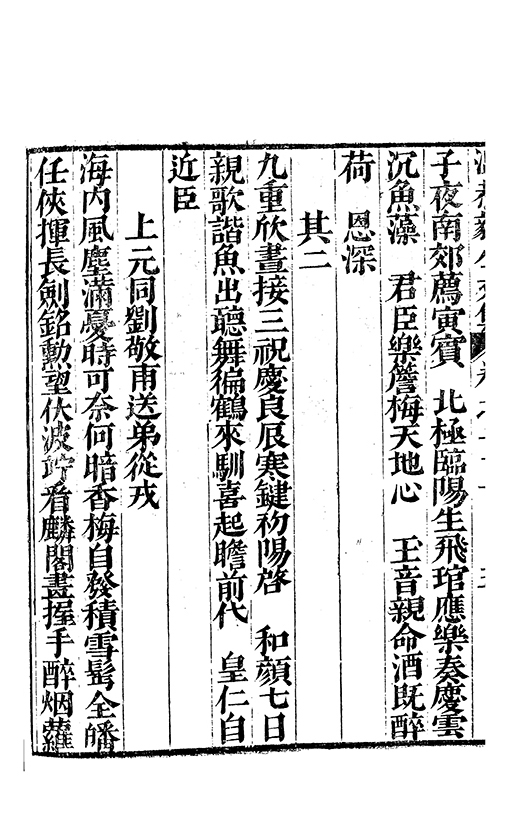 子夜南郊薦寅賓　北極臨陽生飛琯應樂奏慶雲
沉魚藻　君臣樂簷梅天地心　玉音親命酒既醉
荷　恩深
其二
九重欣晝接三祝慶良辰寒鍵初陽啓　和顔七日
親歌諧魚出聽舞徧鶴來馴喜起瞻前代　皇仁自
近臣
上元同劉敬甫送弟從戎
海内風塵滿憂時可奈何暗香梅自發積雪鬂全皤
任俠揮長劍銘勲望伏波竚看麟閣畫握手醉烟蘿